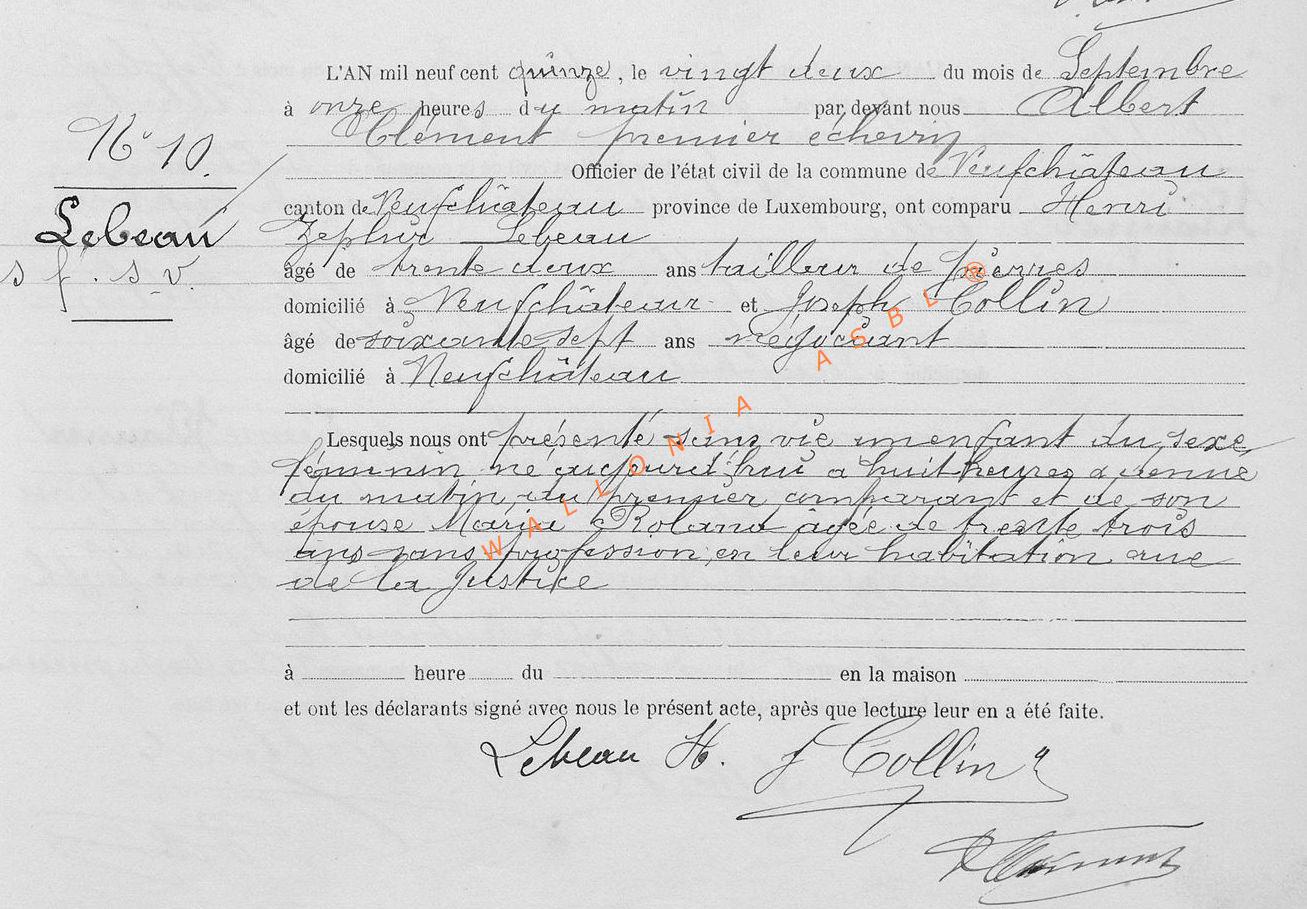 L'AN mil neuf cent quinze, le vingt deux du mois de Septembre
à onze heures du matin par devant nous Albert
Clément premier échevin
Officier de l'état civil de la commune de Neufchâteau
N° 10.
canton de Neufchâteau province de Luxembourg, ont comparu Henri
Lebeau
Zéphir Lebeau
s f. s-v.
âgé de trente deux ans tailleur de pierres
domicilié à Neufchâteau et Joseph Collin
âgé de soixante sept ans négociant
domicilié à Neufchâteau
Lesquels nous ont présenté sans vie un enfant du sexe
féminin né aujourd'hui à huit heures & demie
du matin, du premier comparant et de son
épouse Maria Roland âgée de trente trois
ans sans profession, en leur habitation rue
de la Justice
à heure du en la maison
et ont les déclarants signé avec nous le présent acte, après que lecture leur en a été faite.
Lebeau H. J Collin
WALLONIA ASBL @